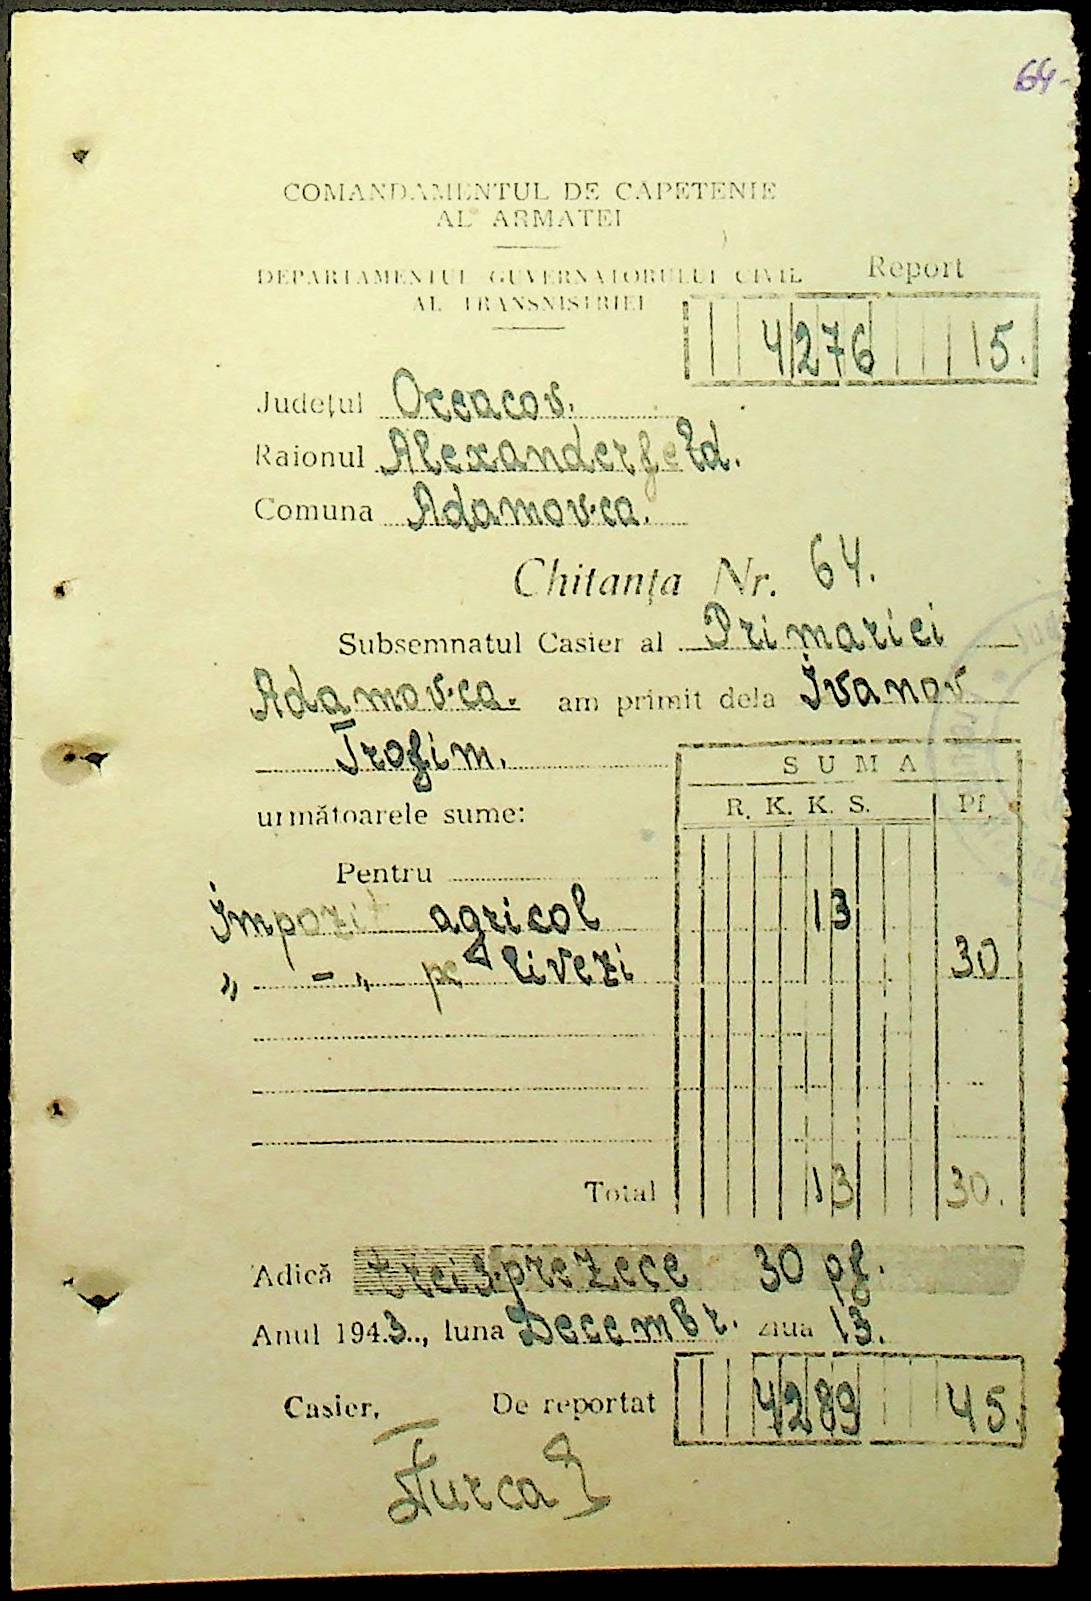 64-
COMANDAMENTUL DE CĂPETENIE
AL ARMATEI
DEPARTAMENTUL GUVERNATORULUI CIVIL
AL TRANSNISTRIEI
Report
4276 15.
Județul Oceacov.
Raionul Alexanderfeld.
Comuna Adamovca.
Chitanța Nr. 64.
Subsemnatul Casier al Primariei
Adamovca. am primit dela Ivanov
Trofim.
SUMA
următoarele sume: R. K. K. S. Pf.
Pentru
Impozit agricol 13
" - " pe livezi 30
Total 13 30.
Adică treisprezece 30 pf.
Anul 1943.., luna Decembr. ziua 13.
Casier, De reportat 4289 45.
Turca